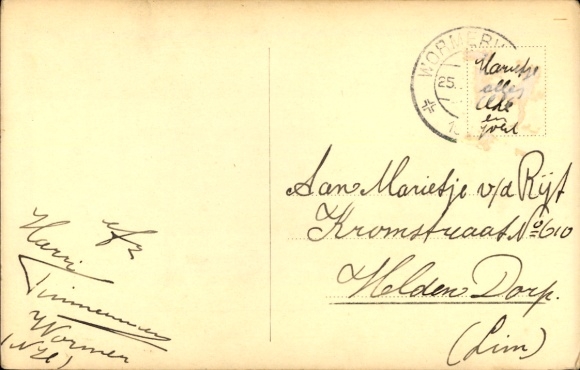 WORMERV
25.
Marietje
alles
en
Aan Marietje v/d Rijt
Kromstraat No 610
Helden Dorp.
(Lim)
afz
Harri
Timmerman
Wormer
(N.H)